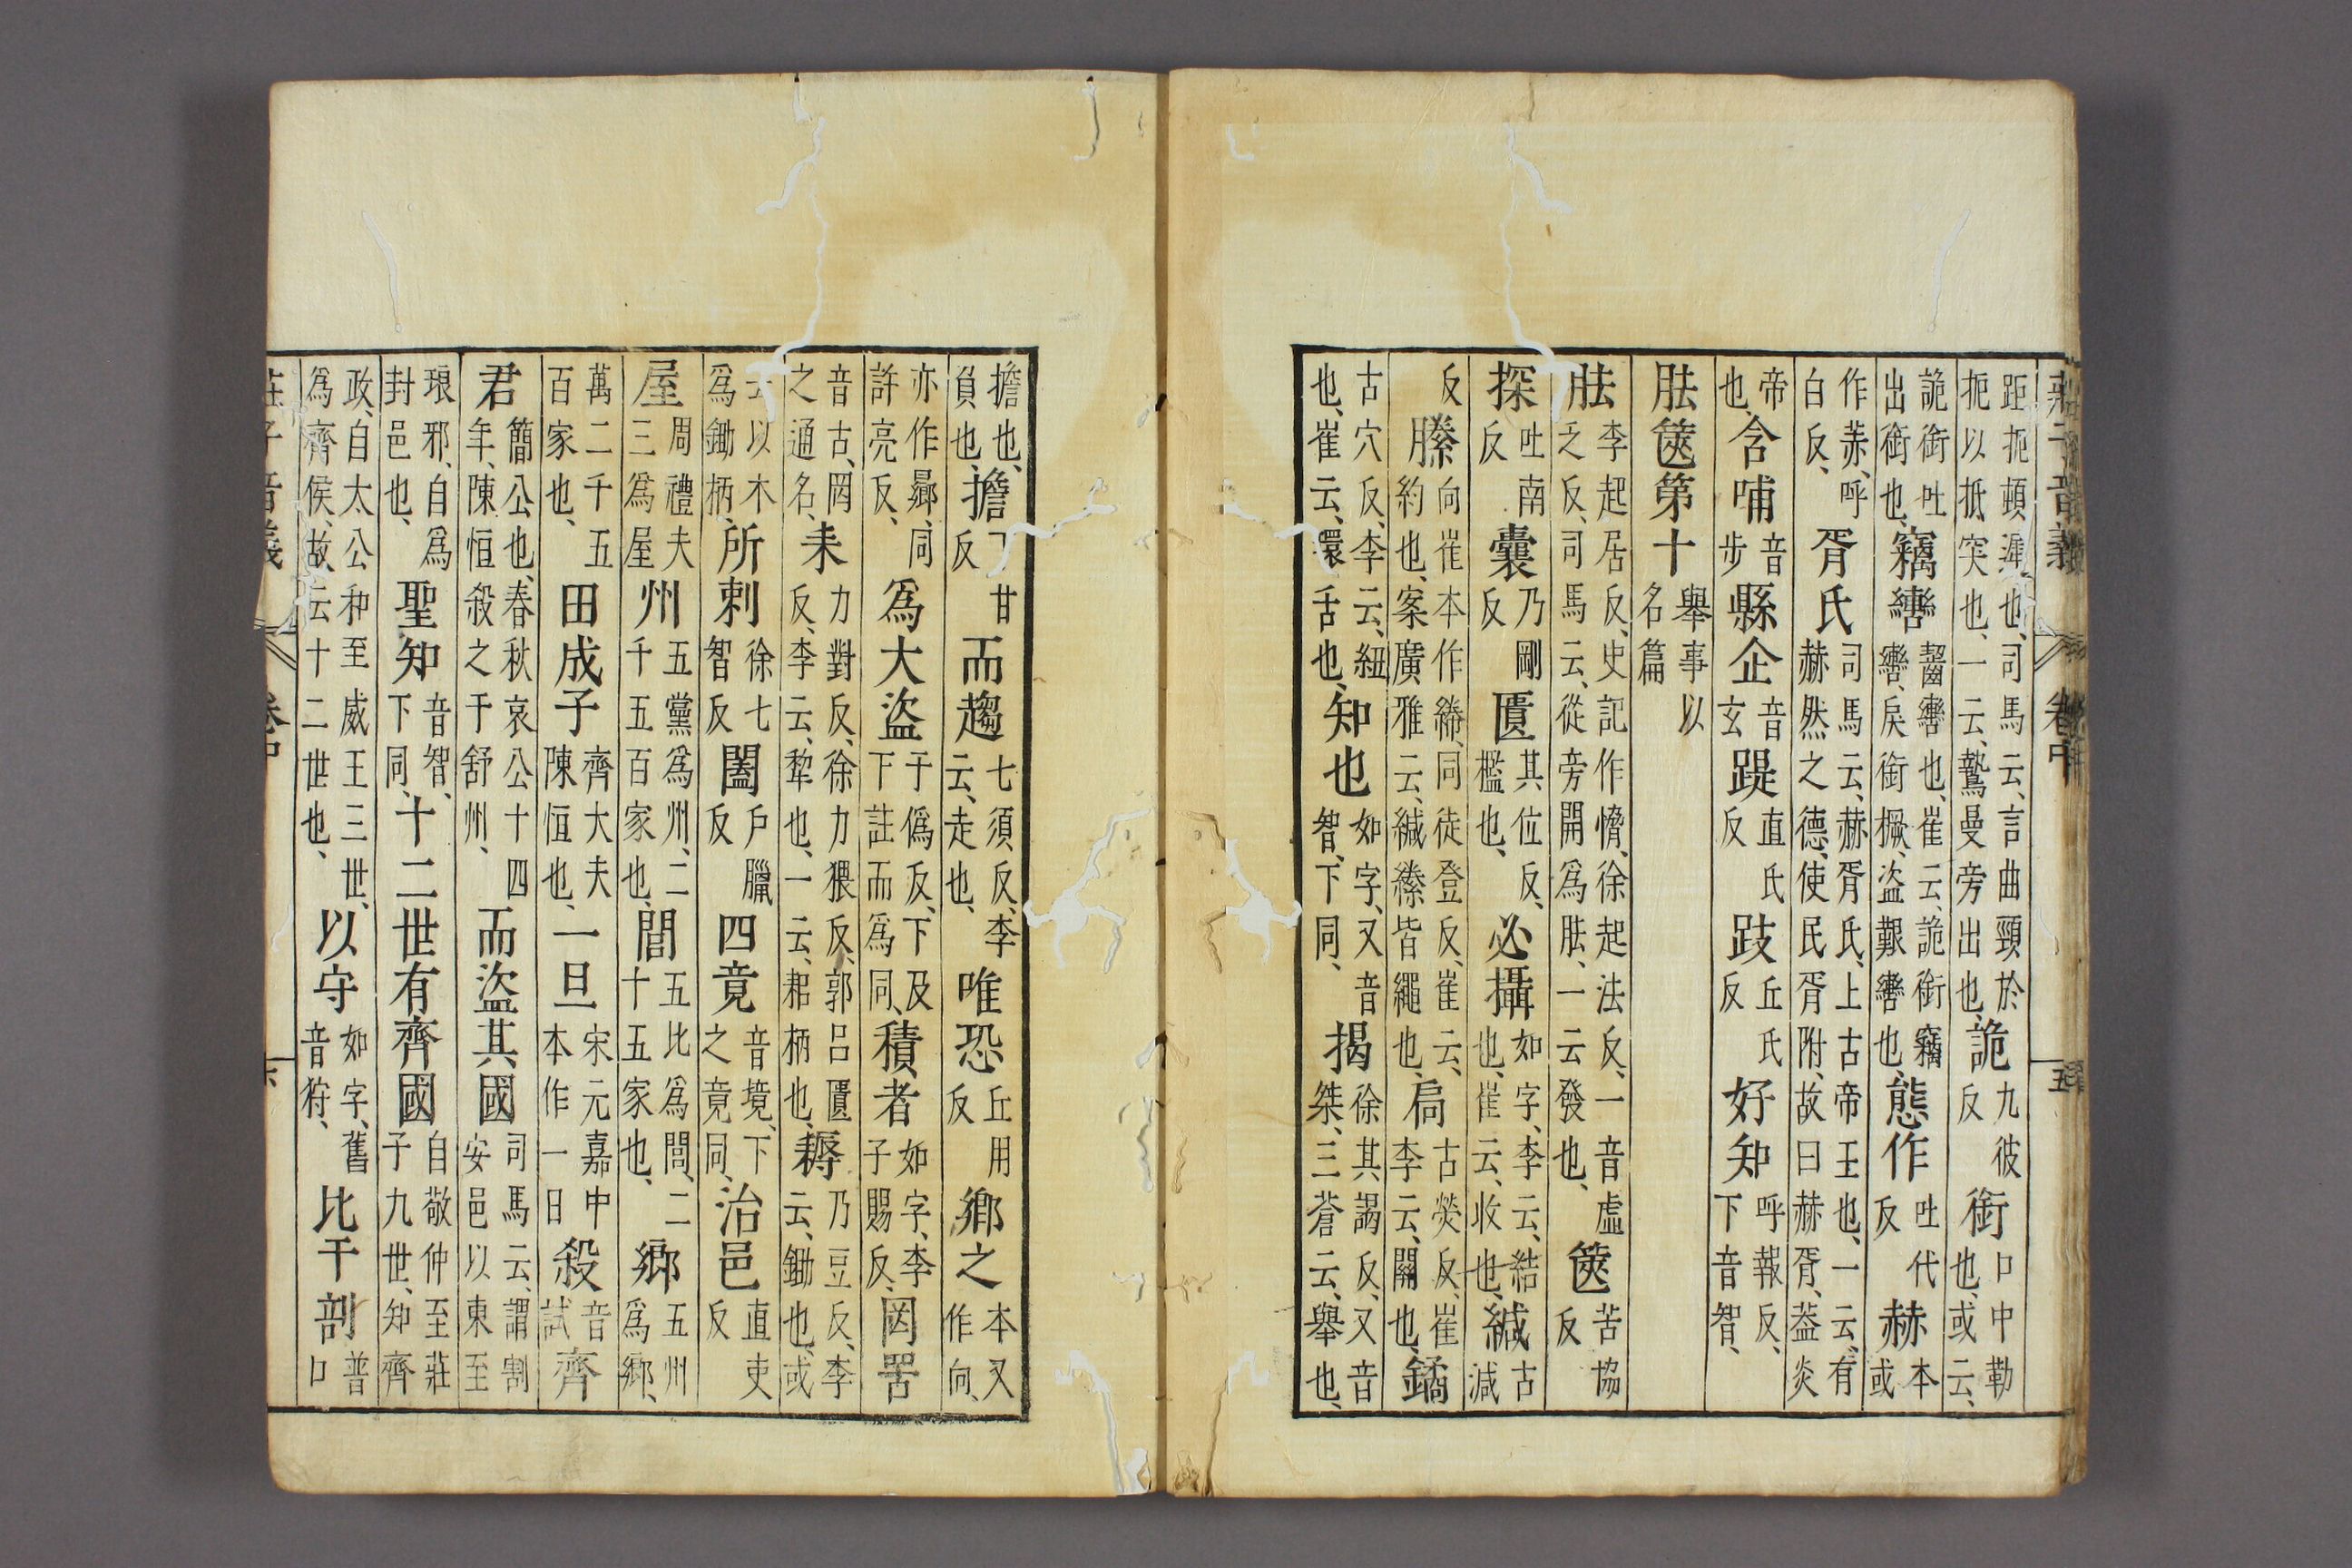 莊子音義 卷中 五
距扼頓遲也、司馬云、言曲頸於扼以抵突也、一云、鷙曼旁出也、詭九彼反銜口中勒也、或云、
詭銜吐出銜也、竊轡齧轡也、崔云、詭銜竊轡、戾銜橛、盜艱轡也、態作吐代反赫本或
作、呼白反、胥氏司馬云、赫胥氏、上古帝王也、一云、有赫然之德、使民胥附、故曰赫胥、葢炎
帝也、含哺音步縣企音玄踶直氏反跂丘氏反好知呼報反、下音智、
胠篋第十舉事以名篇
胠李起居反、史記作、徐起法反、一音虛乏反、司馬云、從旁開爲胠、一云發也、篋苦協反
探吐南反囊乃剛反匱其位反、檻也、必攝如字、李云、結也、崔云、收也、緘古減
反縢向崔本作幐、同徒登反、崔云、約也、案廣雅云、緘縢皆繩也、扃古熒反、崔李云、關也、鐍
古穴反、李云、紐也、崔云、環舌也、知也如字、又音智、下同、揭徐其謁反、又音桀、三蒼云、舉也、
擔也、負也、擔丁甘反而趨七須反、李云、走也、唯恐丘用反鄉之本又作向、
亦作曏、同許亮反、爲大盜于僞反、下及下註而爲同、積者如字、李子賜反、罔罟
音古、罔之通名、耒力對反、徐力猥反、郭呂匱反、李云、犂也、一云、耜柄也、耨乃豆反、李云、鋤也、或
云以木爲鋤柄、所刺徐七智反闔戶臘反四竟音境、下之竟同、治邑直吏反
屋周禮夫三爲屋州五黨爲州、二千五百家也、閭五比爲閭、二十五家也、鄉五州爲鄉、
萬二千五百家也、田成子齊大夫陳恒也、一旦宋元嘉中本作一日殺音試齊
君簡公也、春秋哀公十四年、陳恒殺之于舒州、而盜其國司馬云、謂割安邑以東至
琅邪、自爲封邑也、聖知音智、下同、十二世有齊國自敬仲至莊子九世、知齊
政、自太公和至威王三世、爲齊侯、故云十二世也、以守如字、舊音狩、比干剖普口
莊子音義 卷中